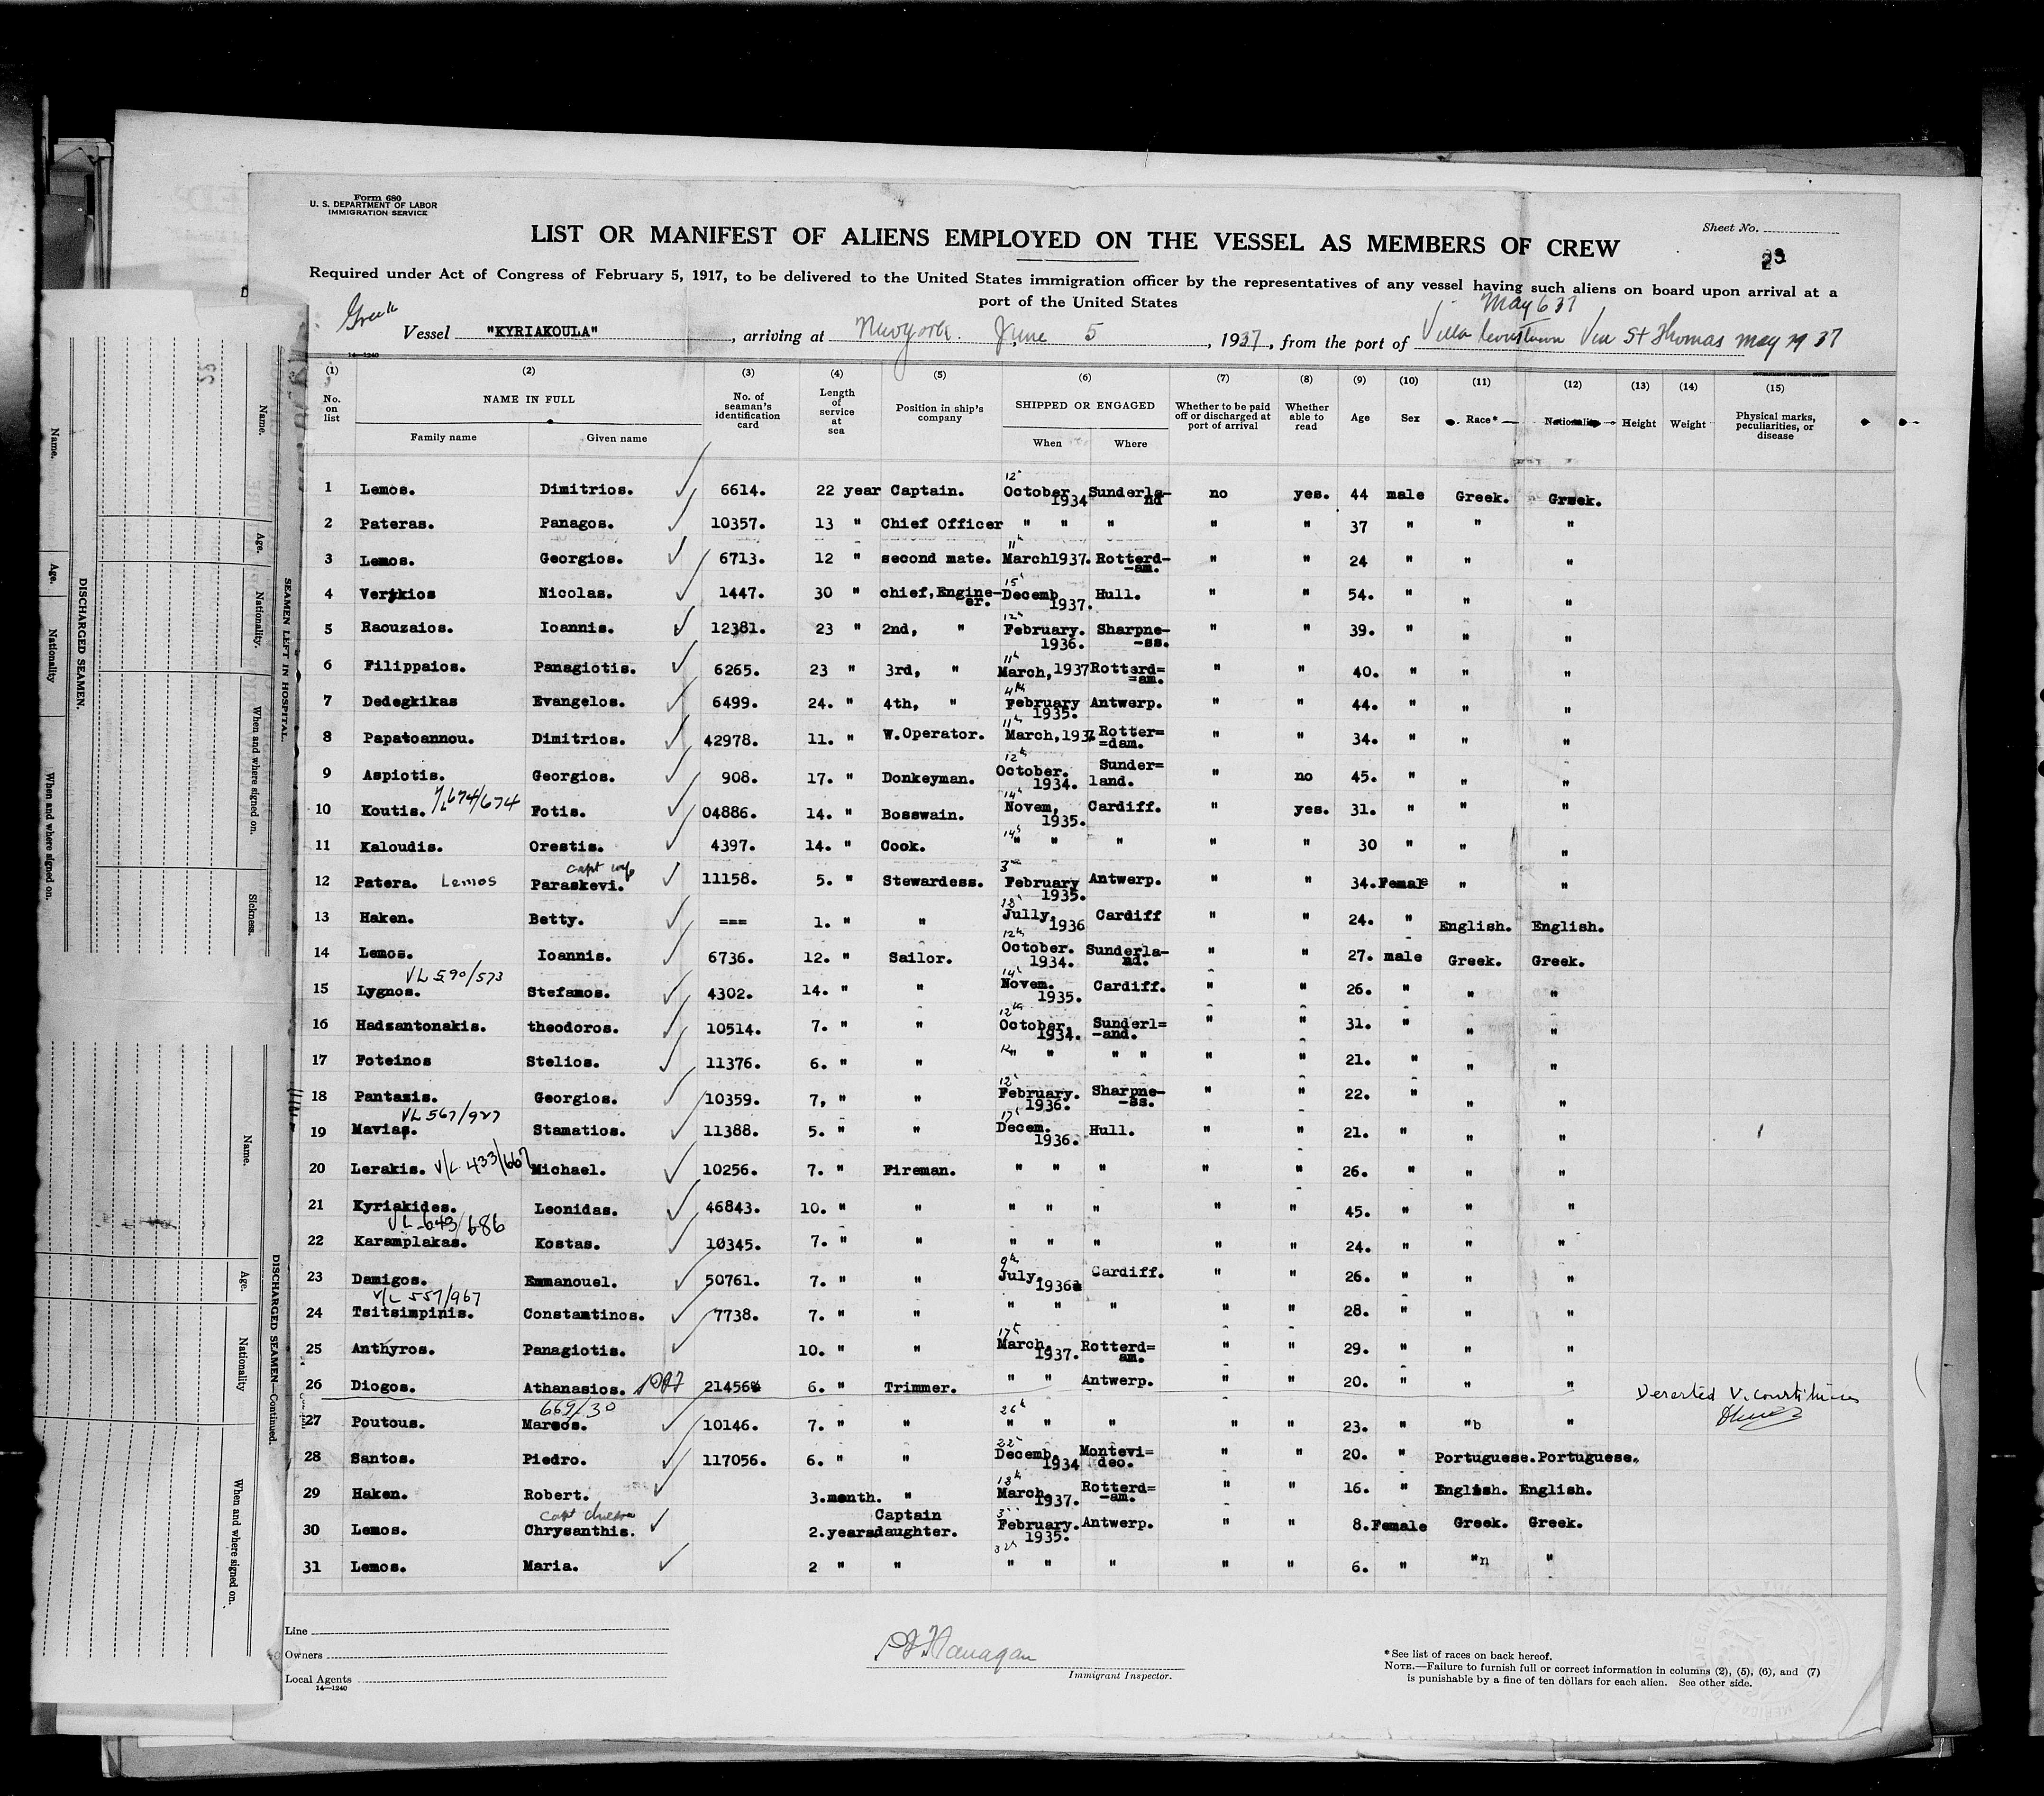 Form 680
U. S. DEPARTMENT OF LABOR
IMMIGRATION SERVICE
Sheet No.
LIST OR MANIFEST OF ALIENS EMPLOYED ON THE VESSEL AS MEMBERS OF CREW
Required under Act of Congress of February 5, 1917, to be delivered to the United States immigration officer by the representatives of any vessel having such aliens on board upon arrival at a
port of the United States
May 6 37
Greek Vessel "KYRIAKOULA", arriving at New York. June 5, 1937, from the port of Villa Via St Thomas May 37
14—1240
(1) (2) (3) (4) (5) (6) (7) (8) (9) (10) (11) (12) (13) (14) (15)
No. on list NAME IN FULL No. of seaman's identification card Length of service at sea Position in ship's company SHIPPED OR ENGAGED Whether to be paid off or discharged at port of arrival Whether able to read Age Sex Race* Nationality Height Weight Physical marks, peculiarities, or disease
Family name Given name When Where
1 Lemos. Dimitrios. 6614. 22 year Captain. 12 October 1934 Sunderla-nd no yes. 44 male Greek. Greek.
2 Pateras. Panagos. 10357. 13 " Chief Officer " " " " " 37 " " "
3 Lemos. Georgios. 6713. 12 " second mate. 11 March1937. Rotterd--am. " " 24 " " "
4 Verykios Nicolas. 1447. 30 " chief,Engine-er. 15 Decemb 1937. Hull. " " 54. " " "
5 Raouzaios. Ioannis. 12381. 23 " 2nd, " 12 February. 1936. Sharpne--ss. " " 39. " " "
6 Filippaios. Panagiotis. 6265. 23 " 3rd, " 11 March,1937 Rotterd==am. " " 40. " " "
7 Dedegkikas Evangelos. 6499. 24. " 4th, " 4th February 1935. Antwerp. " " 44. " " "
8 Papatoannou. Dimitrios. 42978. 11. " W.Operator. 11 March,1937 Rotter==dam. " " 34. " " "
9 Aspiotis. Georgios. 908. 17. " Donkeyman. 12 October. 1934. Sunder=land. " no 45. " " "
10 Koutis. V/L 674/674 Fotis. 04886. 14. " Bosswain. 14 Novem, 1935. Cardiff. " yes. 31. " " "
11 Kaloudis. Orestis. 4397. 14. " Cook. 14 " " " " " 30 " " "
12 Patera. Lemos Paraskevi. capt wife 11158. 5. " Stewardess. 3 February 1935. Antwerp. " " 34. Female " "
13 Haken. Betty. === 1. " " Jully, 1936 Cardiff " " 24. " English. English.
14 Lemos. Ioannis. 6736. 12. " Sailor. 12th October. 1934. Sunderla-nd. " " 27. male Greek. Greek.
15 Lygnos. VL 590/573 Stefamos. 4302. 14. " " 14 Novem. 1935. Cardiff. " " 26. " " "
16 Hadzantonakis. theodoros. 10514. 7. " " 12th October, 1934. Sunderl=-and. " " 31. " " "
17 Foteinos Stelios. 11376. 6. " " 12 " " " " " " 21. " " "
18 Pantazis. Georgios. 10359. 7, " " 12 February. 1936. Sharpne--ss. " " 22. " " "
19 Mavias. VL 567/927 Stamatios. 11388. 5. " " 17 Decem. 1936. Hull. " " 21. " " "
20 Lerakis. V/L 433/667 Michael. 10256. 7. " Fireman. " " " " " 26. " " "
21 Kyriakides. Leonidas. 46843. 10. " " " " " " " 45. " " "
22 Karamplakas. VL 643/686 Kostas. 10345. 7. " " " " " " " 24. " " "
23 Damigos. Emmanouel. 50761. 7. " " 9th July, 1936 Cardiff. " " 26. " " "
24 Tsitsimpinis. V/L 557/967 Constantinos. 7738. 7. " " " " " " " 28. " " "
25 Anthyros. Panagiotis. 10. " " 17 March, 1937. Rotterd=am. " " 29. " " "
26 Diogos. Athanasios. 21456 6. " Trimmer. " " Antwerp. " " 20. " " " Deserted V.
27 Poutous. 669/30 Marcos. 10146. 7. " " 26 " " " " " 23. " "b "
28 Santos. Piedro. 117056. 6. " " 22 Decemb. 1934 Montevi=deo. " " 20. " Portuguese. Portuguese.
29 Haken. Robert. 3.month. " 13th March, 1937. Rotterd=-am. " " 16. " English. English.
30 Lemos. Chrysanthis. 2.years Captain daughter. 3 February. 1935. Antwerp. " " 8. Female Greek. Greek.
31 Lemos. Maria. 2 " " " " " " " 6. " "n "
Line
Owners
Local Agents
14—1240
Immigrant Inspector.
* See list of races on back hereof.
NOTE.—Failure to furnish full or correct information in columns (2), (5), (6), and (7)
is punishable by a fine of ten dollars for each alien. See other side.
SEAMEN LEFT IN HOSPITAL.
Name. Age. Nationality. When and where signed on. Sickness.
DISCHARGED SEAMEN.
Name. Age. Nationality When and where signed on.
DISCHARGED SEAMEN—Continued.
Name. Age. Nationality When and where signed on.